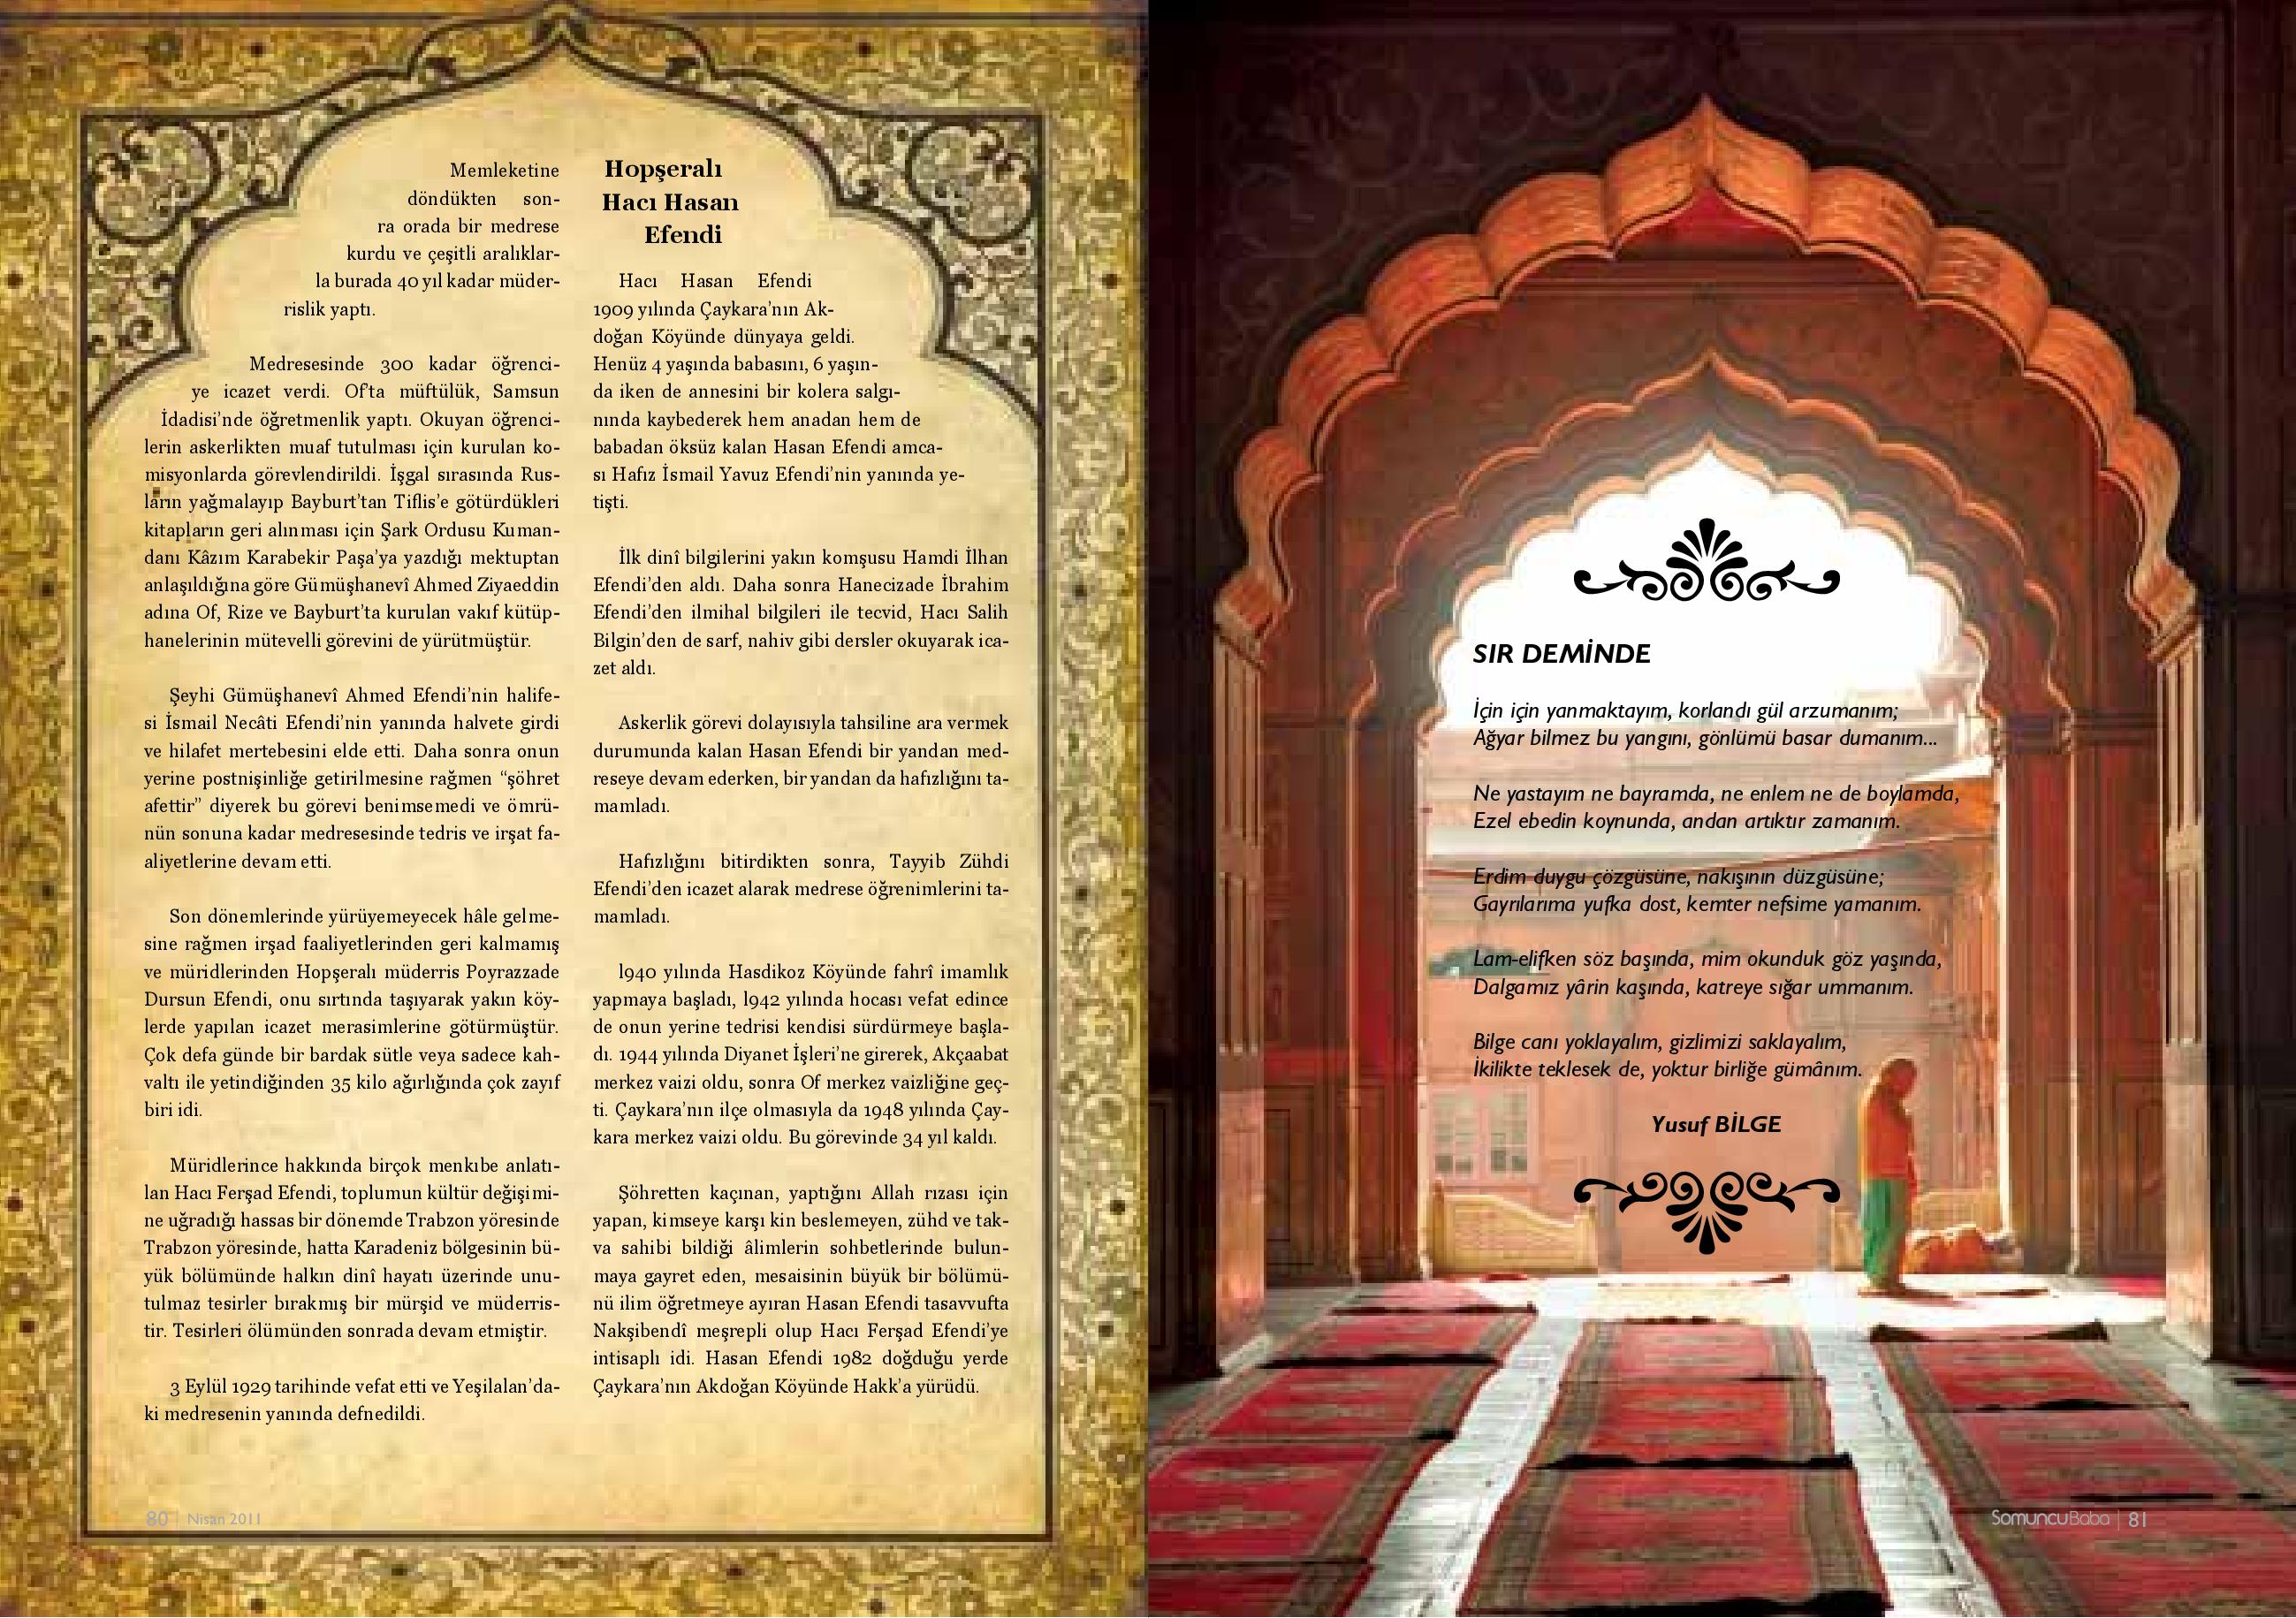 Memleketine
döndükten son-
ra orada bir medrese
kurdu ve çeşitli aralıklar-
la burada 40 yıl kadar müder-
rislik yaptı.
Medresesinde 300 kadar öğrenci-
ye icazet verdi. Of'ta müftülük, Samsun
İdadisi'nde öğretmenlik yaptı. Okuyan öğrenci-
lerin askerlikten muaf tutulması için kurulan ko-
misyonlarda görevlendirildi. İşgal sırasında Rus-
ların yağmalayıp Bayburt'tan Tiflis'e götürdükleri
kitapların geri alınması için Şark Ordusu Kuman-
danı Kâzım Karabekir Paşa'ya yazdığı mektuptan
anlaşıldığına göre Gümüşhanevî Ahmed Ziyaeddin
adına Of, Rize ve Bayburt'ta kurulan vakıf kütüp-
hanelerinin mütevelli görevini de yürütmüştür.
Şeyhi Gümüşhanevî Ahmed Efendi'nin halife-
si İsmail Necâti Efendi'nin yanında halvete girdi
ve hilafet mertebesini elde etti. Daha sonra onun
yerine postnişinliğe getirilmesine rağmen “şöhret
afettir” diyerek bu görevi benimsemedi ve ömrü-
nün sonuna kadar medresesinde tedris ve irşat fa-
aliyetlerine devam etti.
Son dönemlerinde yürüyemeyecek hâle gelme-
sine rağmen irşad faaliyetlerinden geri kalmamış
ve müridlerinden Hopşeralı müderris Poyrazzade
Dursun Efendi, onu sırtında taşıyarak yakın köy-
lerde yapılan icazet merasimlerine götürmüştür.
Çok defa günde bir bardak sütle veya sadece kah-
valtı ile yetindiğinden 35 kilo ağırlığında çok zayıf
biri idi.
Müridlerince hakkında birçok menkıbe anlatı-
lan Hacı Ferşad Efendi, toplumun kültür değişimi-
ne uğradığı hassas bir dönemde Trabzon yöresinde
Trabzon yöresinde, hatta Karadeniz bölgesinin bü-
yük bölümünde halkın dinî hayatı üzerinde unu-
tulmaz tesirler bırakmış bir mürşid ve müderris-
tir. Tesirleri ölümünden sonrada devam etmiştir.
3 Eylül 1929 tarihinde vefat etti ve Yeşilalan'da-
ki medresenin yanında defnedildi.
Hopşeralı
Hacı Hasan
Efendi
Hacı Hasan Efendi
1909 yılında Çaykara'nın Ak-
doğan Köyünde dünyaya geldi.
Henüz 4 yaşında babasını, 6 yaşın-
da iken de annesini bir kolera salgı-
nında kaybederek hem anadan hem de
babadan öksüz kalan Hasan Efendi amca-
sı Hafız İsmail Yavuz Efendi'nin yanında ye-
tişti.
İlk dinî bilgilerini yakın komşusu Hamdi İlhan
Efendi'den aldı. Daha sonra Hanecizade İbrahim
Efendi'den ilmihal bilgileri ile tecvid, Hacı Salih
Bilgin'den de sarf, nahiv gibi dersler okuyarak ica-
zet aldı.
Askerlik görevi dolayısıyla tahsiline ara vermek
durumunda kalan Hasan Efendi bir yandan med-
reseye devam ederken, bir yandan da hafızlığını ta-
mamladı.
Hafızlığını bitirdikten sonra, Tayyib Zühdi
Efendi'den icazet alarak medrese öğrenimlerini ta-
mamladı.
l940 yılında Hasdikoz Köyünde fahrî imamlık
yapmaya başladı, l942 yılında hocası vefat edince
de onun yerine tedrisi kendisi sürdürmeye başla-
dı. 1944 yılında Diyanet İşleri'ne girerek, Akçaabat
merkez vaizi oldu, sonra Of merkez vaizliğine geç-
ti. Çaykara'nın ilçe olmasıyla da 1948 yılında Çay-
kara merkez vaizi oldu. Bu görevinde 34 yıl kaldı.
Şöhretten kaçınan, yaptığını Allah rızası için
yapan, kimseye karşı kin beslemeyen, zühd ve tak-
va sahibi bildiği âlimlerin sohbetlerinde bulun-
maya gayret eden, mesaisinin büyük bir bölümü-
nü ilim öğretmeye ayıran Hasan Efendi tasavvufta
Nakşibendî meşrepli olup Hacı Ferşad Efendi'ye
intisaplı idi. Hasan Efendi 1982 doğduğu yerde
Çaykara'nın Akdoğan Köyünde Hakk'a yürüdü.
80 | Nisan 2011
SIR DEMİNDE
İçin için yanmaktayım, korlandı gül arzumanım;
Ağyar bilmez bu yangını, gönlümü basar dumanım...
Ne yastayım ne bayramda, ne enlem ne de boylamda,
Ezel ebedin koynunda, andan artıktır zamanım.
Erdim duygu çözgüsüne, nakışının düzgüsüne;
Gayrılarıma yufka dost, kemter nefsime yamanım.
Lam-elifken söz başında, mim okunduk göz yaşında,
Dalgamız yârin kaşında, katreye sığar ummanım.
Bilge canı yoklayalım, gizlimizi saklayalım,
İkilikte teklesek de, yoktur birliğe gümânım.
Yusuf BİLGE
SomuncuBaba | 81